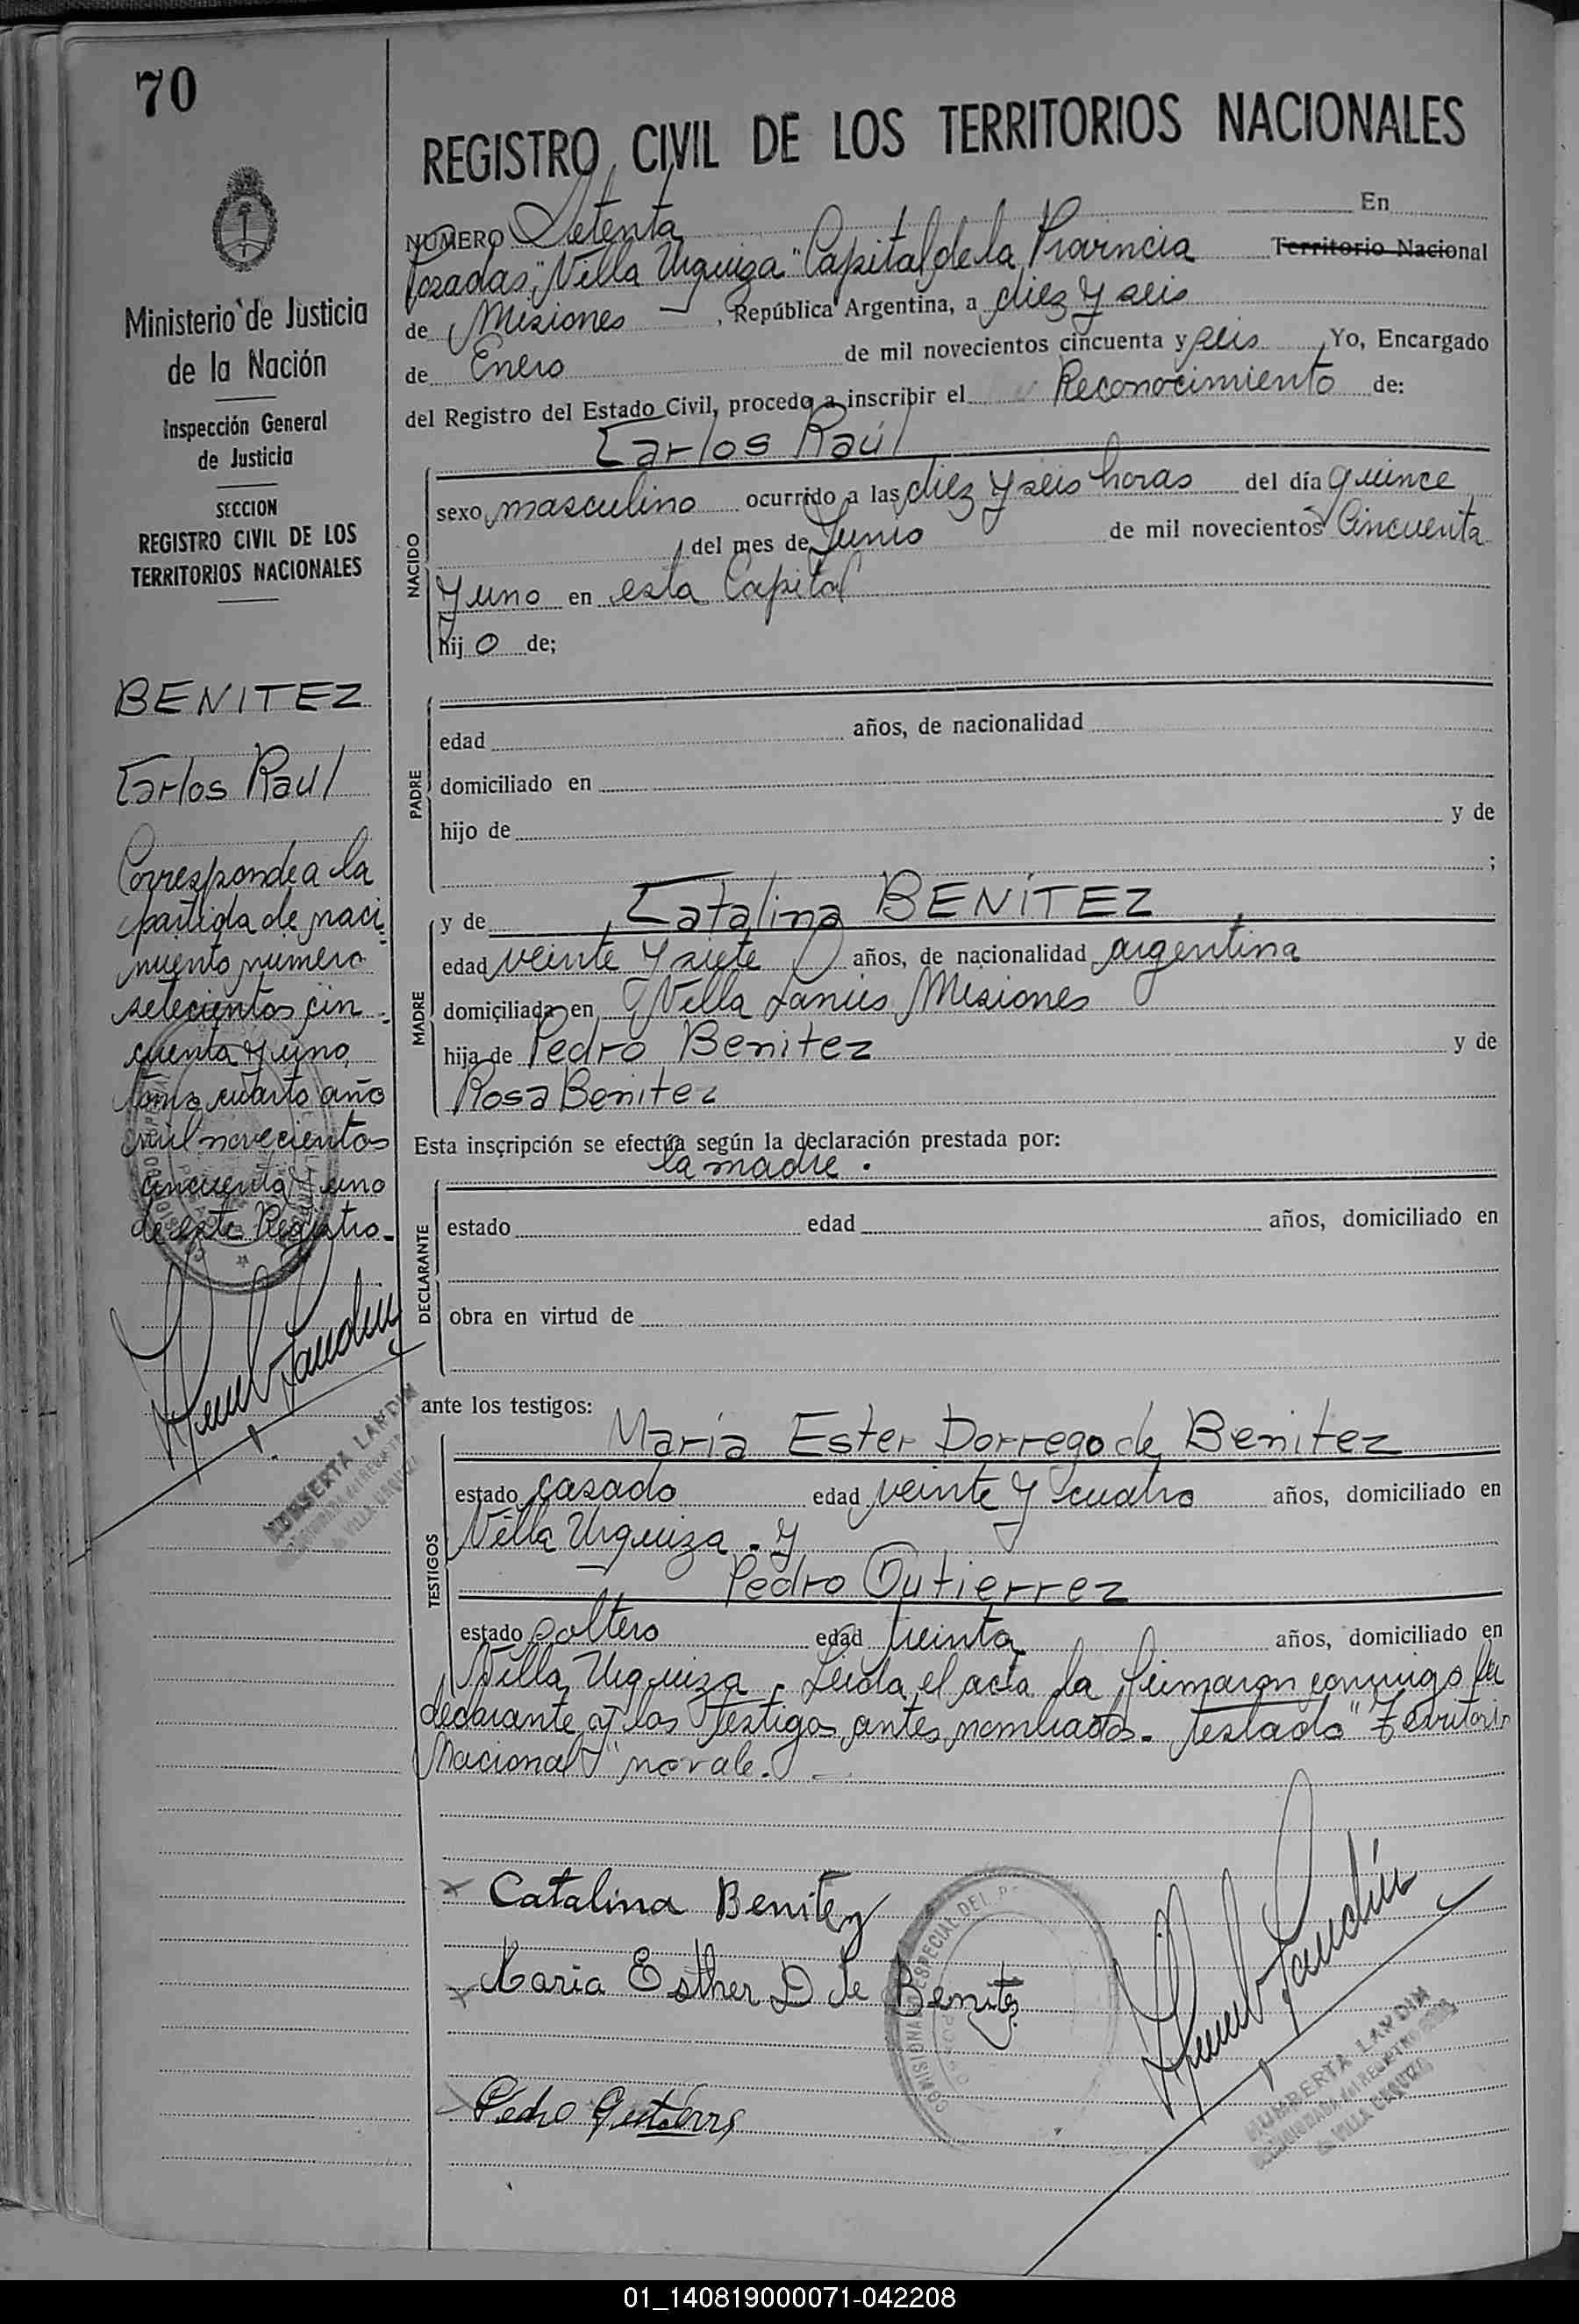 70
REGISTRO CIVIL DE LOS TERRITORIOS NACIONALES
Ministerio de Justicia
de la Nación
Inspección General
de Justicia
SECCION
REGISTRO CIVIL DE LOS
TERRITORIOS NACIONALES
BENITEZ
Carlos Raul
Corresponde a la
partida de naci
miento numero
setecientos cin
cuenta y uno
tomo cuarto año
mil novecientos
cincuenta y uno
de este Registro.
HUMBERTA LANDIN
VILLA URQUIZA
NUMERO Setenta En
Posadas, "Villa Urquiza" Capital de la Provincia Territorio Nacional
de Misiones, República Argentina, a diez y seis
de Enero de mil novecientos cincuenta y seis Yo, Encargado
del Registro del Estado Civil, procedo a inscribir el Reconocimiento de:
Carlos Raúl
NACIDO
sexo masculino ocurrido a las diez y seis horas del día quince
del mes de Junio de mil novecientos Cincuenta
y uno en esta Capital
hij o de;
PADRE
edad años, de nacionalidad
domiciliado en
hijo de y de
;
MADRE
y de Catalina BENÍTEZ
edad veinte y siete años, de nacionalidad argentina
domiciliada en Villa Lanús Misiones
hija de Pedro Benitez y de
Rosa Benitez
Esta inscripción se efectúa según la declaración prestada por:
la madre.
DECLARANTE
estado edad años, domiciliado en
obra en virtud de
ante los testigos:
TESTIGOS
María Ester Dorrego de Benitez
estado casado edad veinte y cuatro años, domiciliado en
Villa Urquiza - y
Pedro Gutierrez
estado soltero edad treinta años, domiciliado en
Villa Urquiza. Leida el acta la firmaron conmigo la
declarante y los testigos antes nombrados. testado "Territorio
Nacional" no vale.
Catalina Benitez
Maria Esther D de Benitez
Pedro Gutierrez
COMISIONADO ESPECIAL DEL
HUMBERTA LANDIN
COMISIONADA del REGISTRO
VILLA URQUIZA
01_140819000071-042208